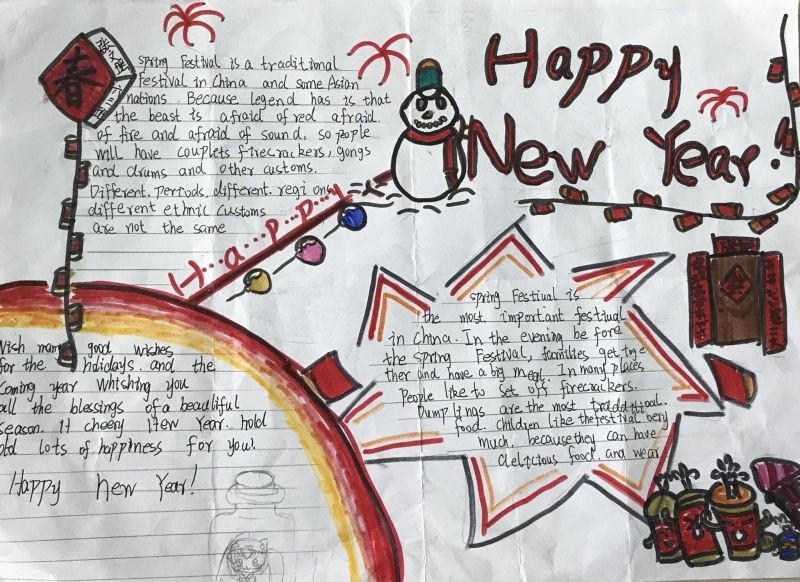 春
Spring Festival is a traditional
Festival in China and some Asian
nations. Because legend has is that
the beast is afraid of red afraid.
of fire and afraid of sound, so people
will have couplets firecrackers, gongs
and drums and other customs.
Different. periods. different. regions
different ethnic customs
are not the same
Happy
New Year.
H...a...p...p...y
Wish many good wishes
for the hilidays. and the
Coming year Whishing you
all the blessings of a beautiful
season. it cheery New Year. hold
lots of happiness for you!.
Happy new Year!
Spring Festival is
the most important festival
in China. In the evening before
the Spring Festival, families get toge
ther and have a big meal. In many places
People like to set off firecrackers.
Dumplings are the most traditional.
food. children like the festival very
much. because they can have
delicious food. and wear